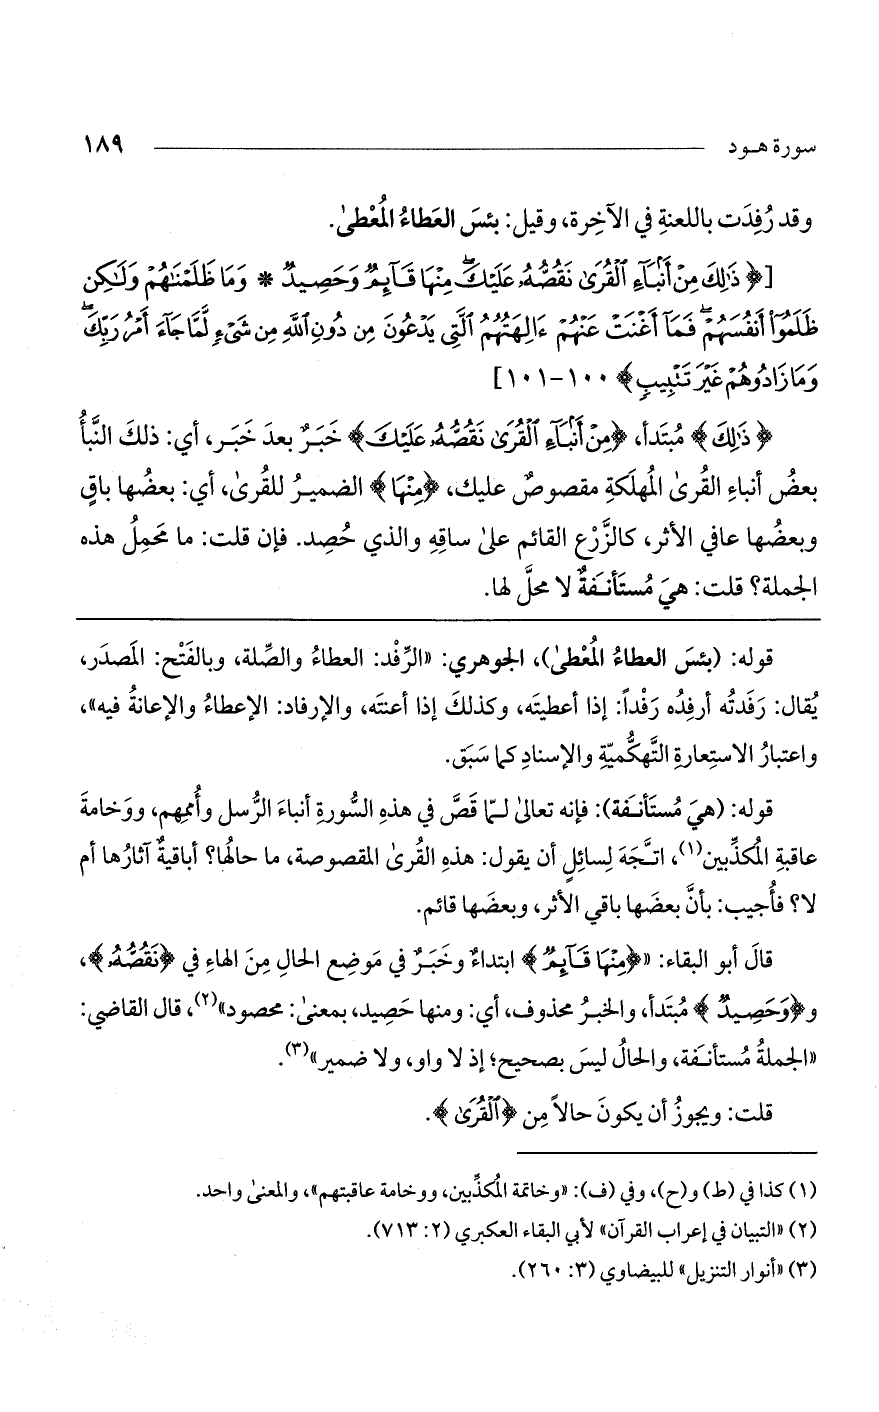 سورة هود ١٨٩
وقد رُفِدَت باللعنةِ في الآخِرة، وقيل: بئسَ العَطاءُ المُعْطىٰ.
[﴿ذَٰلِكَ مِنْ أَنۢبَآءِ ٱلْقُرَىٰ نَقُصُّهُۥ عَلَيْكَ ۖ مِنْهَا قَآئِمٌ وَحَصِيدٌ * وَمَا ظَلَمْنَٰهُمْ وَلَٰكِن
ظَلَمُوٓا۟ أَنفُسَهُمْ ۖ فَمَآ أَغْنَتْ عَنْهُمْ ءَالِهَتُهُمُ ٱلَّتِى يَدْعُونَ مِن دُونِ ٱللَّهِ مِن شَىْءٍ لَّمَّا جَآءَ أَمْرُ رَبِّكَ ۖ
وَمَا زَادُوهُمْ غَيْرَ تَتْبِيبٍ﴾ ١٠٠-١٠١]
﴿ذَٰلِكَ﴾ مُبتَدأ، ﴿مِنْ أَنۢبَآءِ ٱلْقُرَىٰ نَقُصُّهُۥ عَلَيْكَ﴾ خَبَرٌ بعدَ خَبَر، أي: ذلكَ النَّبأُ
بعضُ أنباءِ القُرىٰ المُهلَكةِ مقصوصٌ عليك، ﴿مِنْهَا﴾ الضميرُ للقُرىٰ، أي: بعضُها باقٍ
وبعضُها عافي الأثر، كالزَّرْعِ القائم علىٰ ساقِهِ والذي حُصِد. فإن قلت: ما مَحمِلُ هذه
الجملة؟ قلت: هيَ مُستَأنَفةٌ لا محلَّ لها.
قوله: (بئسَ العطاءُ المُعْطىٰ)، الجوهري: «الرِّفْد: العطاءُ والصِّلة، وبالفَتْح: المَصدَر،
يُقال: رَفَدتُه أرفِدُه رَفْداً: إذا أعطيتَه، وكذلكَ إذا أعنتَه، والإرفاد: الإعطاءُ والإعانةُ فيه»،
واعتبارُ الاستِعارةِ التَّهكُّميّةِ والإسنادِ كما سَبَق.
قوله: (هيَ مُستَأنَفة): فإنه تعالىٰ لـمّا قَصَّ في هذهِ السُّورةِ أنباءَ الرُّسل وأُممِهم، ووَخامةَ
عاقبةِ المُكذِّبين(١)، اتَّجَهَ لِسائلٍ أن يقول: هذهِ القُرىٰ المقصوصة، ما حالُها؟ أباقيةٌ آثارُها أم
لا؟ فأُجيب: بأنَّ بعضَها باقي الأثر، وبعضَها قائم.
قالَ أبو البقاء: «﴿مِنْهَا قَآئِمٌ﴾ ابتداءٌ وخَبَرٌ في مَوضِع الحالِ مِنَ الهاءِ في ﴿نَقُصُّهُۥ﴾،
و﴿وَحَصِيدٌ﴾ مُبتَدأ، والخبرُ محذوف، أي: ومنها حَصِيد، بمعنىٰ: محصود»(٢)، قال القاضي:
«الجملةُ مُستأنَفة، والحالُ ليسَ بصحيح؛ إذ لا واو، ولا ضمير»(٣).
قلت: ويجوزُ أن يكونَ حالاً مِن ﴿ٱلْقُرَىٰ﴾.
(١) كذا في (ط) و(ح)، وفي (ف): «وخاتمة المُكذِّبين، ووخامة عاقبتهم»، والمعنىٰ واحد.
(٢) «التبيان في إعراب القرآن» لأبي البقاء العكبري (٢: ٧١٣).
(٣) «أنوار التنزيل» للبيضاوي (٣: ٢٦٠).